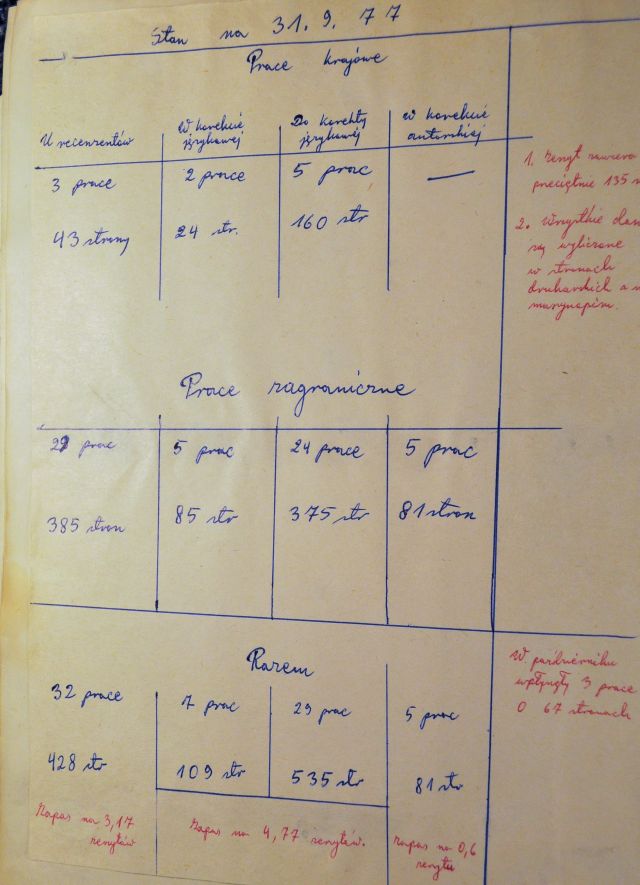 Stan na 31. 9. 77
Prace krajowe
U recenzentów
W korekcie
językowej
Do korekty
językowej
W korekcie
autorskiej
3 prace 2 prace 5 prac —
43 strony 24 str. 160 str
1. Zeszyt zawiera
przeciętnie 135
2. Wszystkie
są wyliczone
w stronach
drukarskich a
maszynopisu.
Prace zagraniczne
prac 5 prac 24 prace 5 prac
385 stron 85 str 375 str 81 stron
Razem
32 prace 7 prac 29 prac 5 prac
428 str 109 str 535 str 81 str
W październiku
wpłynęły 3 prace
o 67 stronach
Zapas na 3,17
zeszytów
Zapas na 4,77 zeszytów.
Zapas na 0,6
zeszytu